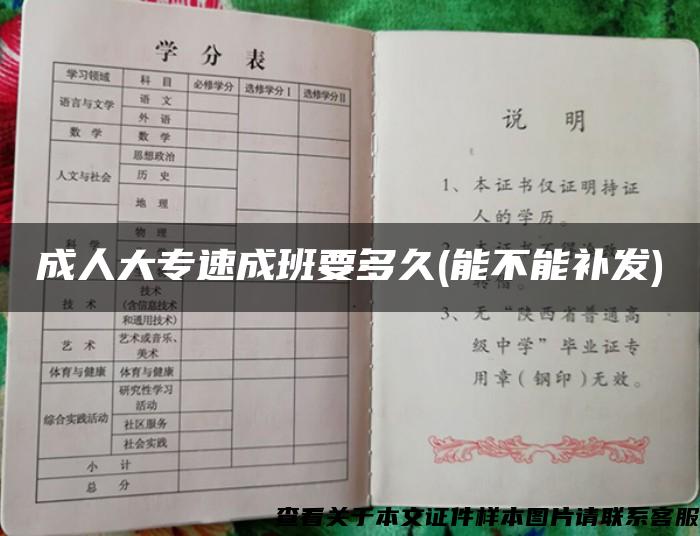 学分表
学习领域 科目 必修学分 选修学分Ⅰ 选修学分Ⅱ
语言与文学 语文
外语
数学 数学
人文与社会 思想政治
历史
地理
物理
技术 技术
(含信息技术
和通用技术)
艺术 艺术或音乐、
美术
体育与健康 体育与健康
综合实践活动 研究性学习
活动
社区服务
社会实践
小计
总分
说明
1、本证书仅证明持证
人的学历。
3、无“陕西省普通高
级中学”毕业证专
用章(钢印)无效。
成人大专速成班要多久(能不能补发)
查看关于本文证件样本图片请联系客服